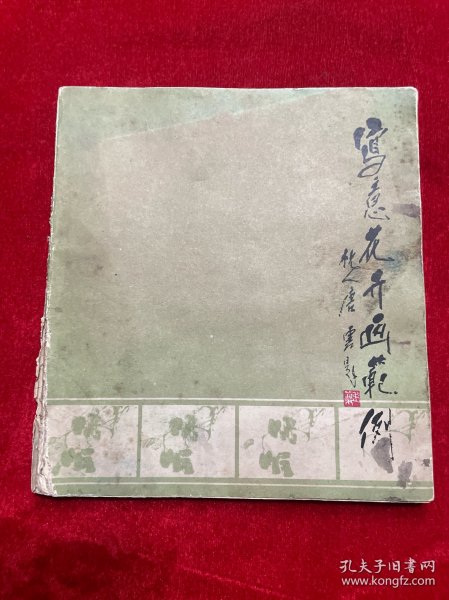 寫意花卉画範例
杭人唐雲題
孔夫子旧书网
www.kongfz.com